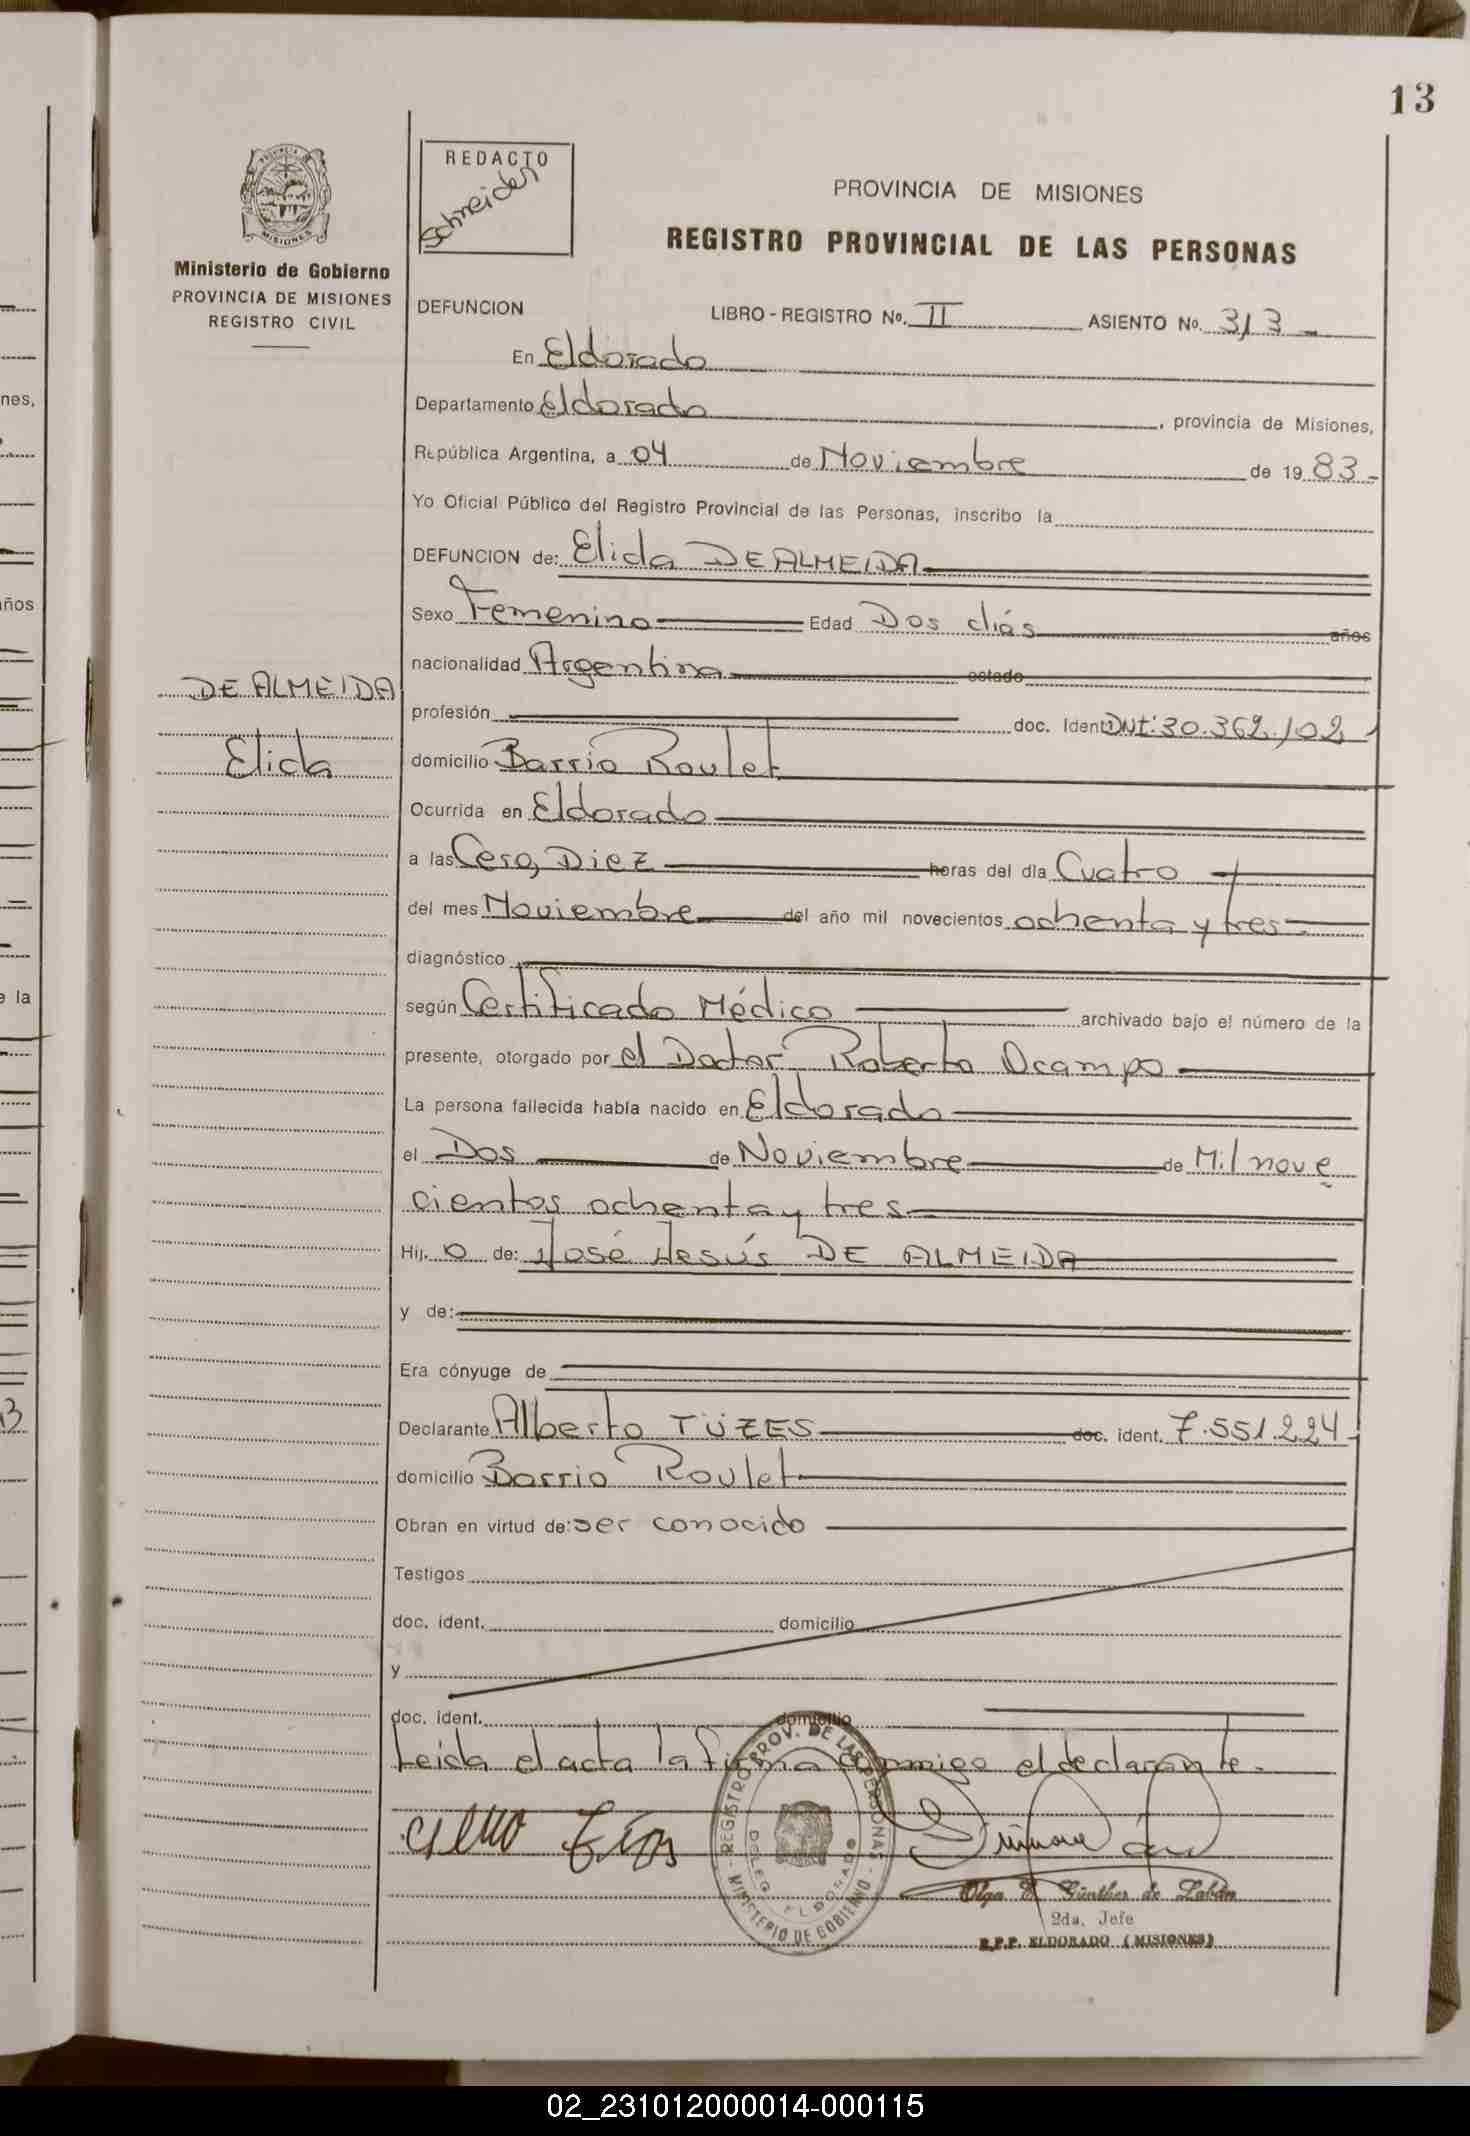 13
REDACTO
Schneider
PROVINCIA DE MISIONES
MISIONES
PROVINCIA DE MISIONES
REGISTRO PROVINCIAL DE LAS PERSONAS
Ministerio de Gobierno
PROVINCIA DE MISIONES
REGISTRO CIVIL
DEFUNCION LIBRO - REGISTRO No. II ASIENTO No. 313
En Eldorado
nes,
Departamento Eldorado, provincia de Misiones,
República Argentina, a 04 de Noviembre de 1983-
Yo Oficial Público del Registro Provincial de las Personas, inscribo la
DEFUNCION de: Elida DE ALMEIDA
años
Sexo Femenino Edad Dos días años
nacionalidad Argentina estado
DE ALMEIDA
profesión doc. Ident DNI: 30.362.102
Elida
domicilio Barrio Roulet
Ocurrida en Eldorado
a las Cero, Diez horas del día Cuatro
del mes Noviembre del año mil novecientos ochenta y tres-
diagnóstico
e la
según Certificado Médico archivado bajo el número de la
presente, otorgado por el Doctor Roberto Ocampo
La persona fallecida había nacido en Eldorado
el Dos de Noviembre de Mil nove
cientos ochenta y tres
Hij. o de: José Jesús DE ALMEIDA
y de:
Era cónyuge de
Declarante Alberto TÜZES doc. ident. 7.551.224
domicilio Barrio Roulet
Obran en virtud de: ser conocido
Testigos
doc. ident. domicilio
y
doc. ident. domicilio
Leida el acta la firma conmigo el declarante.
REGISTRO PROV. DE LAS PERSONAS
DELEG. ELDORADO
MINISTERIO DE GOBIERNO
Olga E. Günther de Labán
2da. Jefe
R.P.P. ELDORADO (MISIONES)
02_231012000014-000115